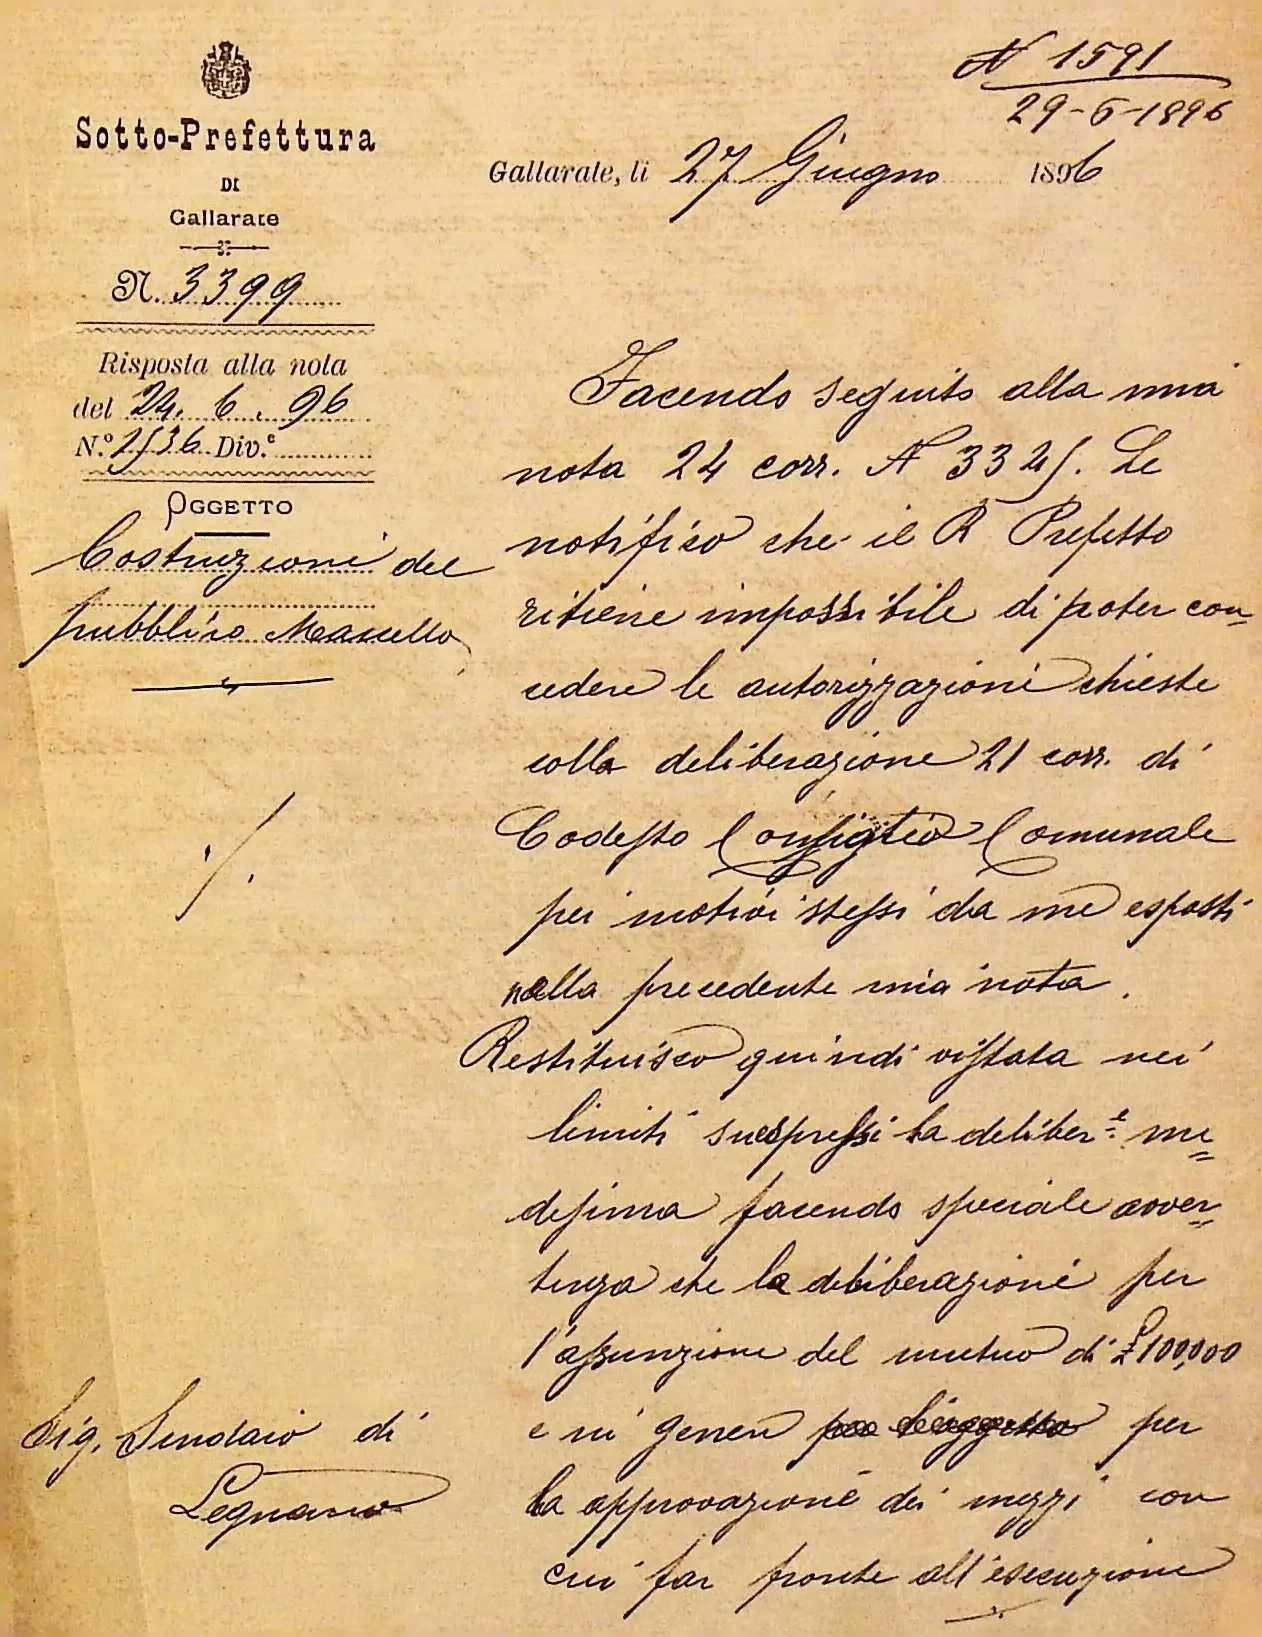 N 1591
29-6-1896
Sotto-Prefettura
DI
Gallarate
Gallarate, li 27 Giugno 1896
N. 3399
Risposta alla nota
del 24. 6. 96
N.º 1536 Div.e
OGGETTO
Costruzioni del
pubblico Macello
Facendo seguito alla mia
nota 24 corr. N 3325. Le
notifico che il R Prefetto
ritiene impossibile di poter con=
cedere le autorizzazioni chieste
colla deliberazione 21 corr. di
Codesto Consiglio Comunale
pei motivi stessi da me esposti
nella precedente mia nota.
Restituisco quindi vistata nei
limiti suespressi la deliber.e me=
desima facendo speciale avver=
tenza che la deliberazione per
l'assunzione del mutuo di £ 100,000
e in genere per
la approvazione dei mezzi con
cui far fronte all'esecuzione
Sig. Sindaco di
Legnano